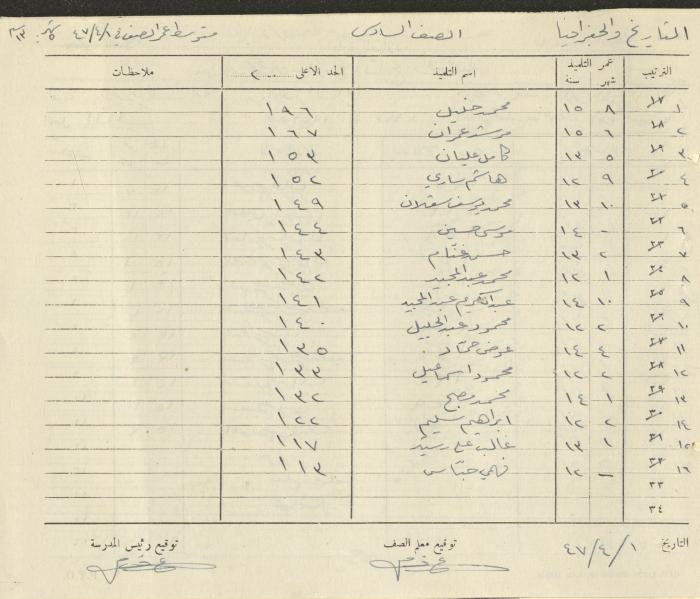 التاريخ والجغرافيا الصف السادس متوسط عمر الصف في ٤٧/٤/١
الترتيب عمر التلميذ اسم التلميذ الحد الاعلى ٢٠٠ ملاحظات
شهر سنة
١ ٨ ١٥ محمد خليل ١٩٦
٢ ٦ ١٥ مرشد عمران ١٦٧
٣ ٥ ١٣ كامل عليان ١٥٣
٤ ٩ ١٢ هاشم ساري ١٥٢
٥ ١٠ ١٣ محمد يوسف سقلان ١٤٩
٦ - ١٤ موسى حسين ١٤٤
٧ ٢ ١٣ حسن غنّام ١٤٣
٨ ١ ١٢ محمد عبد المجيد ١٤٢
٩ ١٠ ١٤ عبد الكريم عبد المجيد ١٤١
١٠ ٢ ١٢ محمود عبد الجليل ١٤٠
١١ ٤ ١٤ عوض حمّاد ١٣٥
١٢ ٢ ١٢ محمود اسماعيل ١٣٣
١٣ ١ ١٤ محمد مصلح ١٣٢
١٤ ٢ ١٢ ابراهيم سليم ١٢٢
١ ١٣ غالب علي رشيد ١١٧
١٦ - ١٢ فهمي ١١٣
٣٣
٣٤
التاريخ ٤٧/٤/١ توقيع معلم الصف توقيع رئيس المدرسة